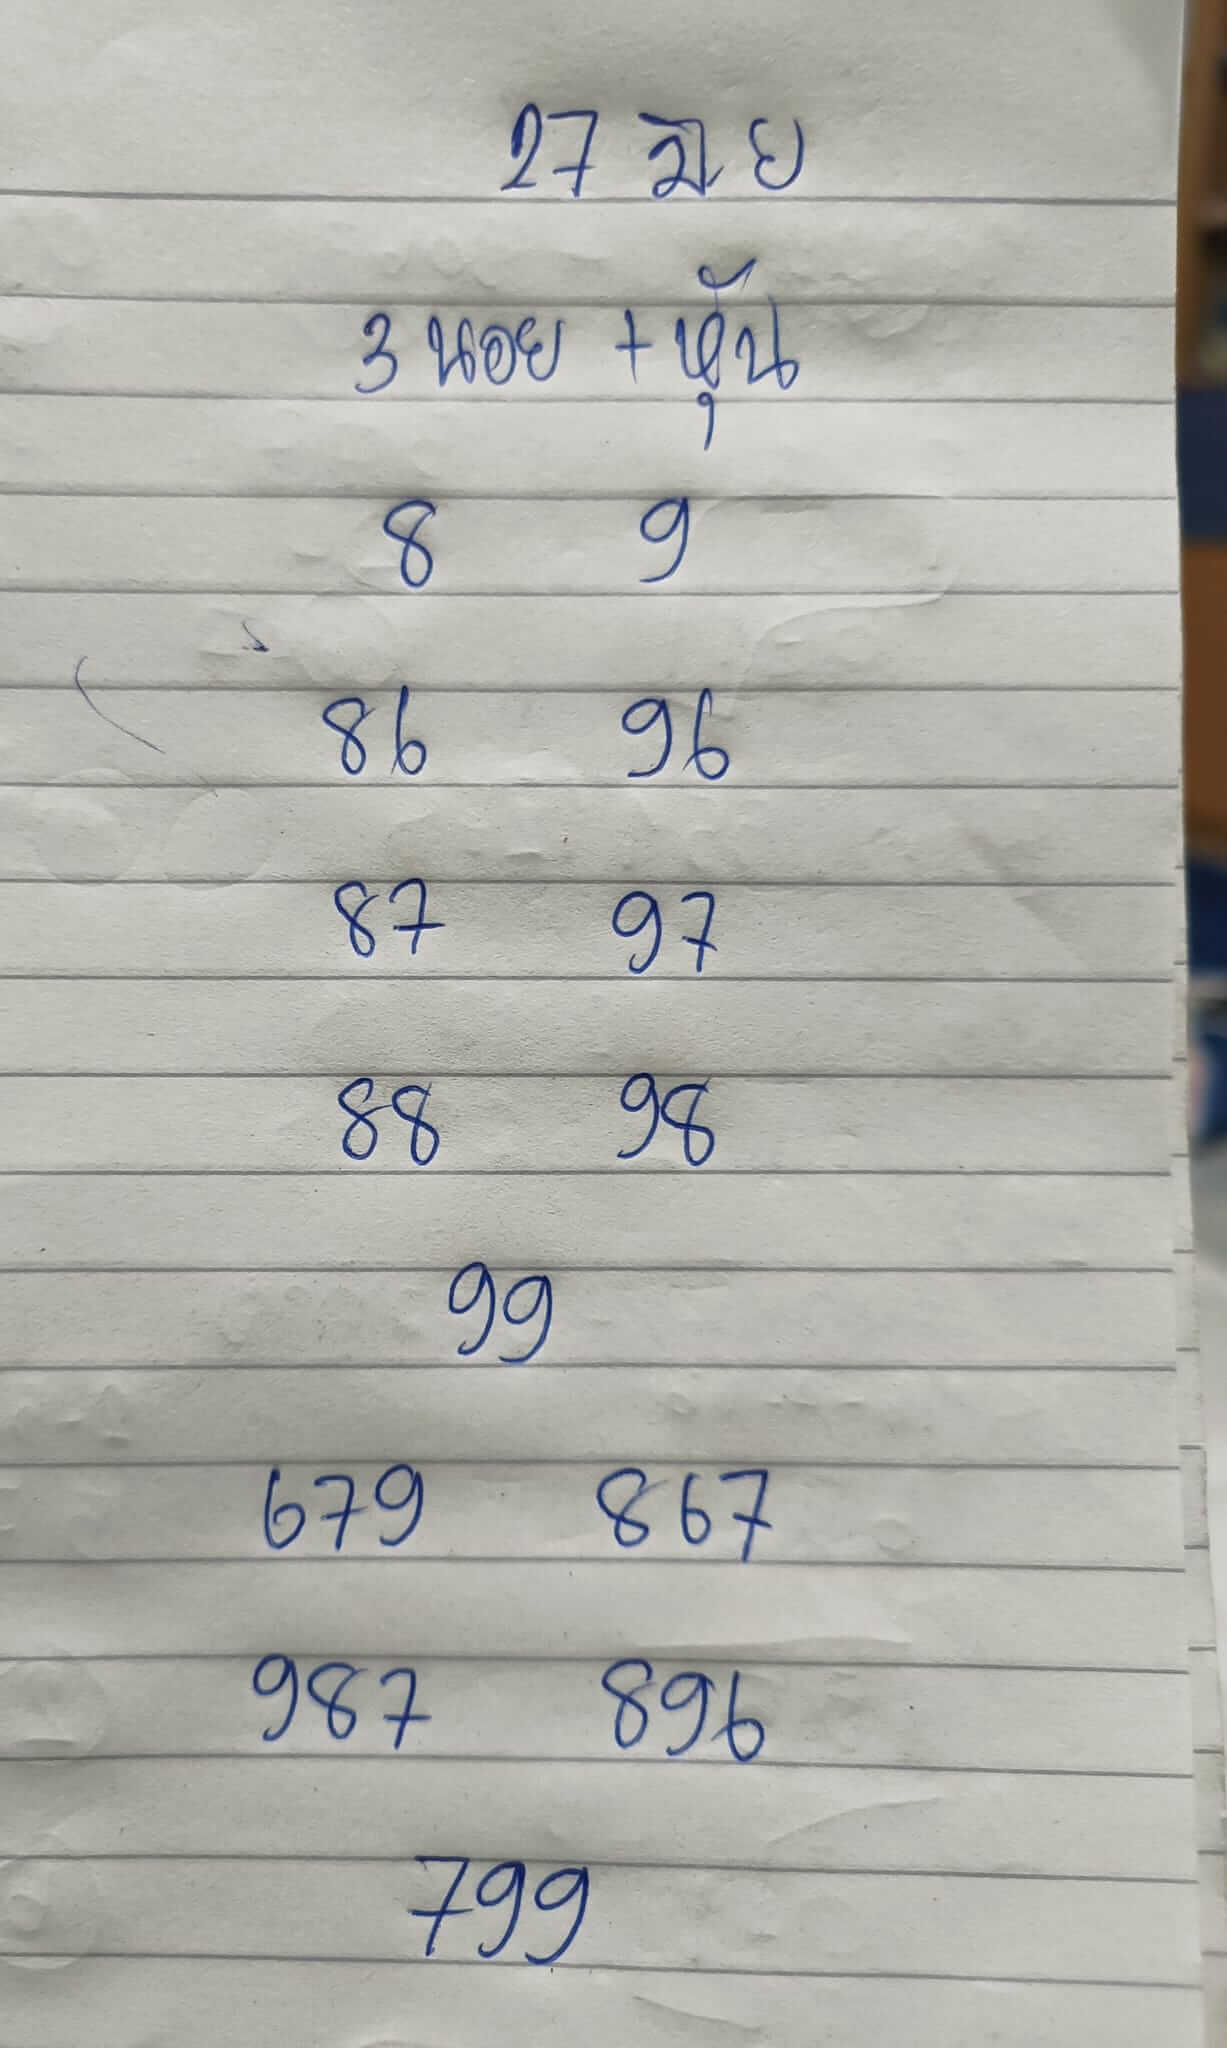 27 มิ ย
3 นอย + หุ้น
8 9
86 96
87 97
88 98
99
679 867
987 896
799